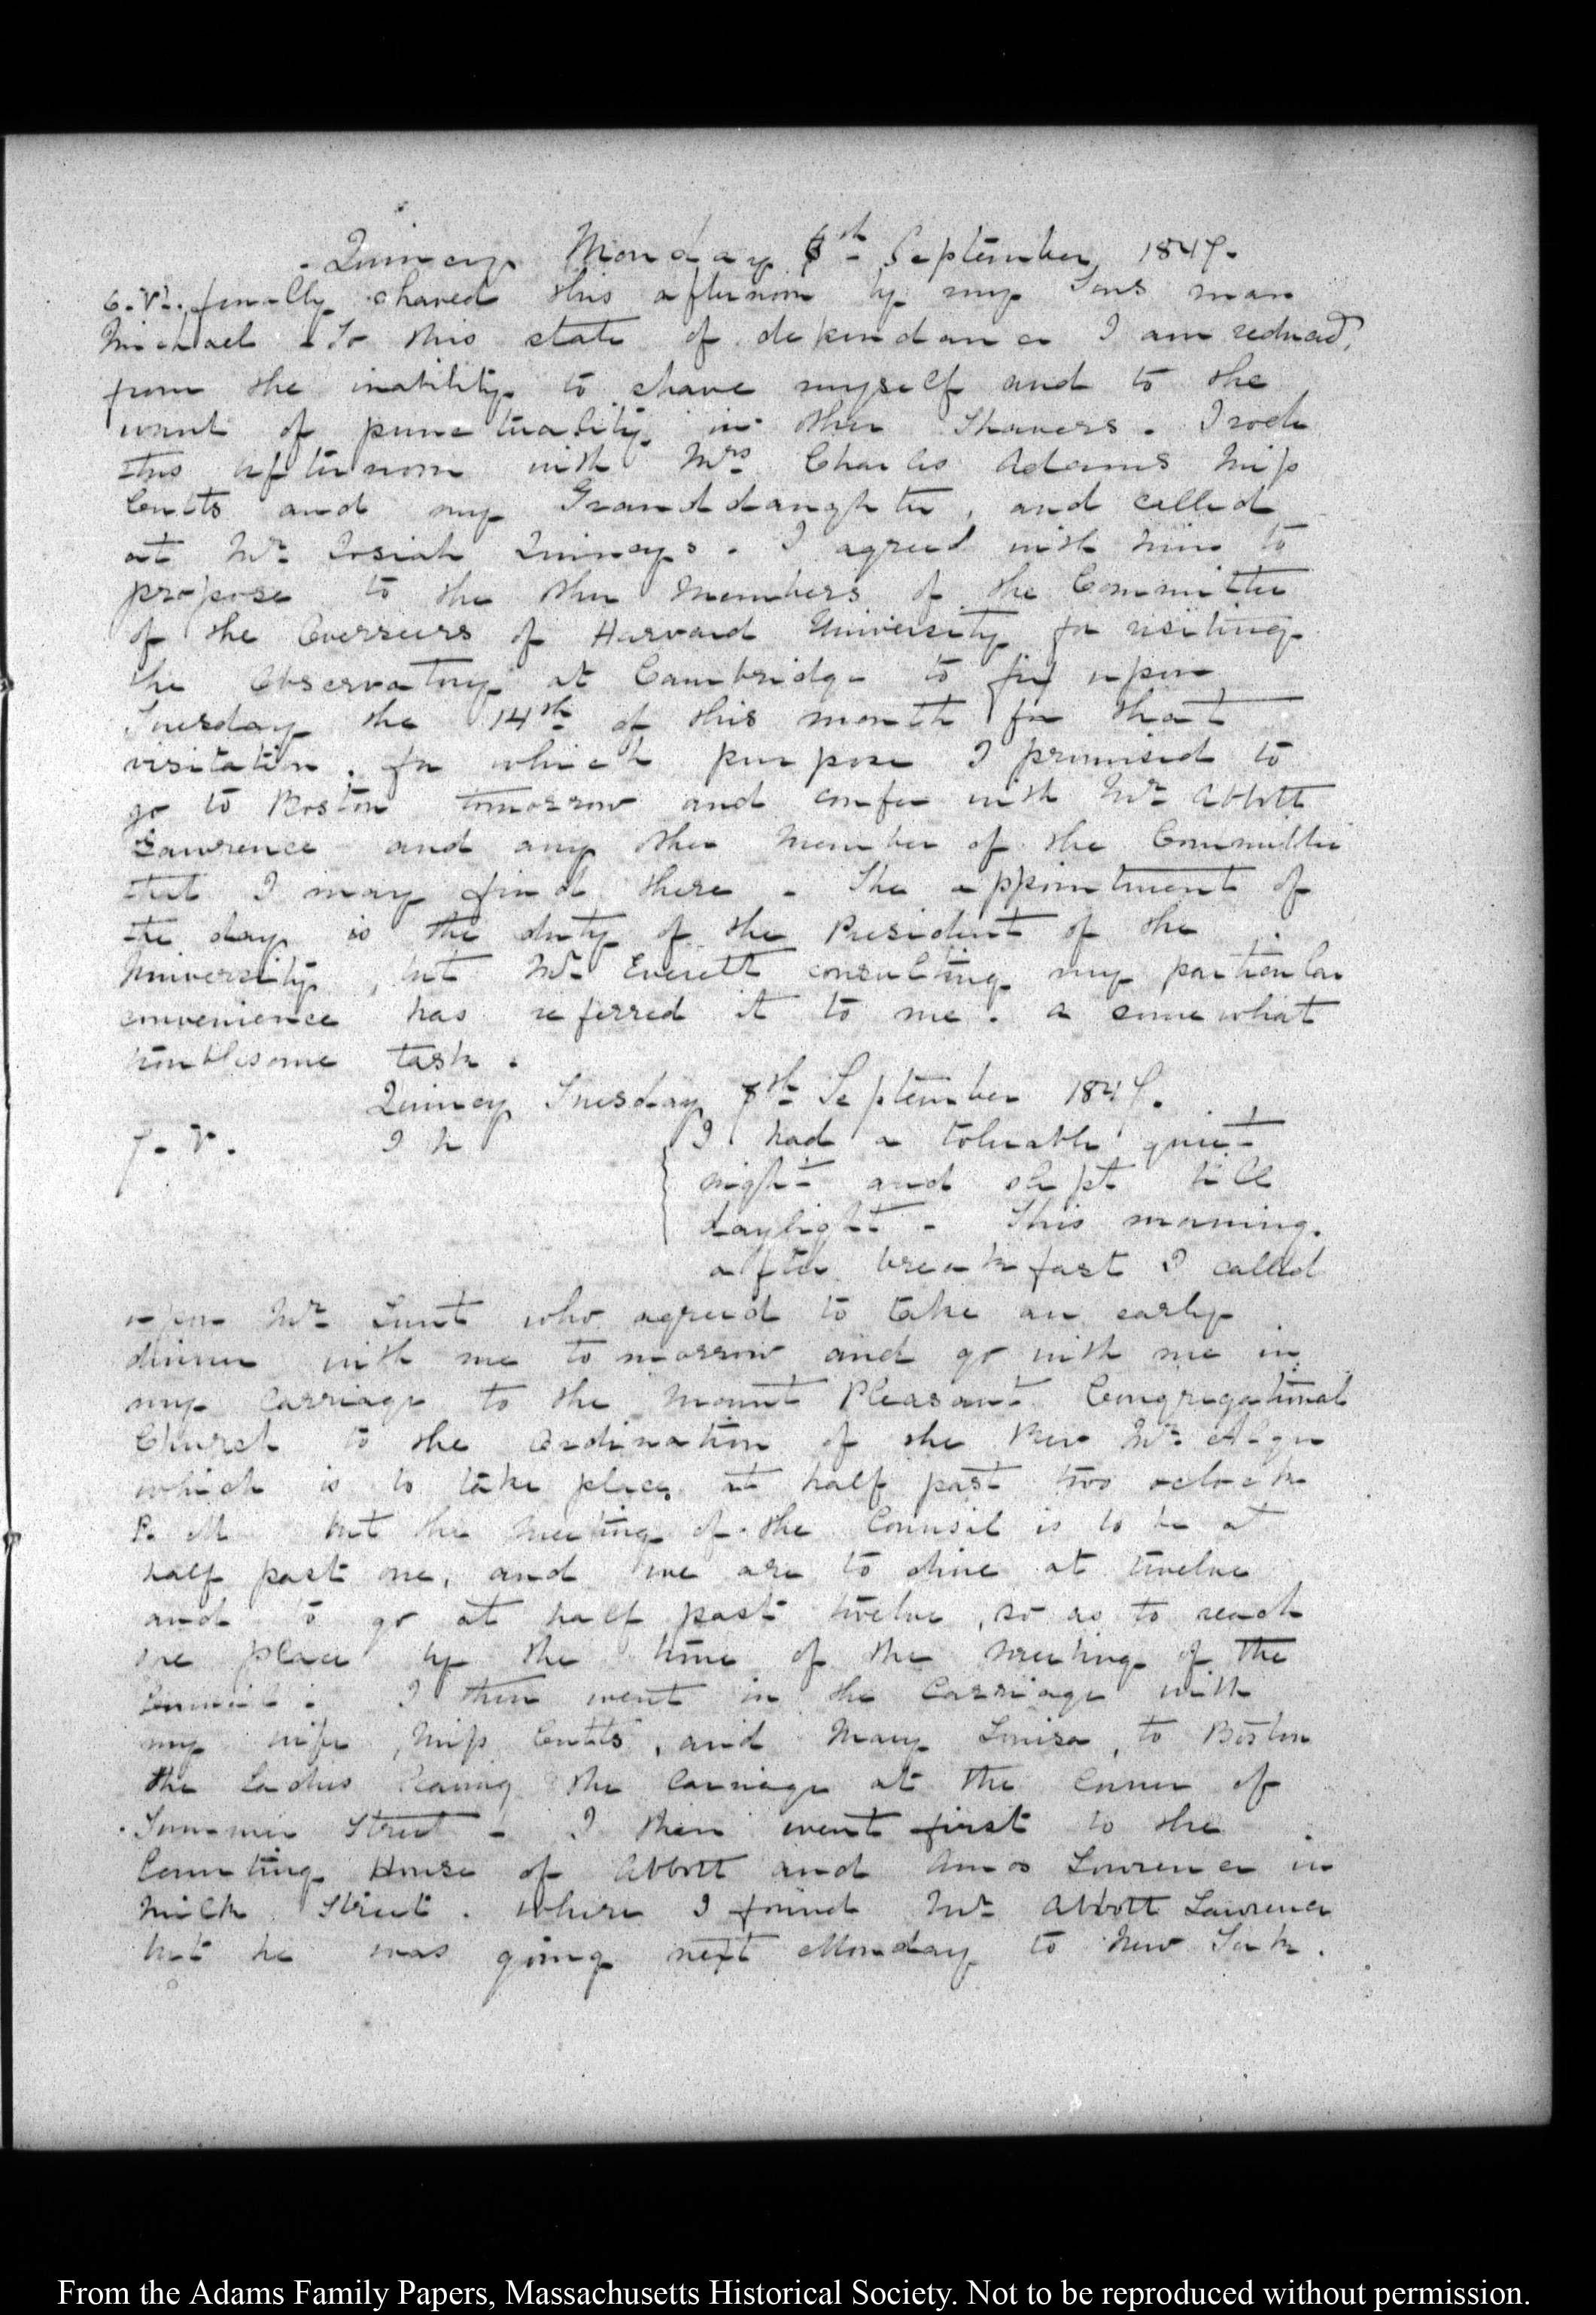 Quincy Monday 6th September 1847.
6. V. finally shaved this afternoon by my Sons man
Michael. To this state of dependance I am reduced,
from the inability to shave myself and to the
want of punctuality in other Shavers. I rode
this afternoon with Mrs Charles Adams Miss
Cutts and my Granddaughter, and called
at Mr Josiah Quincy's. I agreed with him to
propose to the other Members of the Committee
of the Overseers of Harvard University for visiting
the Observatory at Cambridge to fix upon
Tuesday the 14th of this month for that
visitation. for which purpose I promised to
go to Boston tomorrow and confer with Mr Abbott
Lawrence and any other Member of the Committee
that I may find there. The appointment of
the day is the duty of the President of the
University, but Mr Everett consulting my particular
convenience has referred it to me. a somewhat
troublesome task.
Quincy Tuesday 7th September 1847.
7. V. I h
I had a tolerable quiet
night and slept till
daylight. This morning.
after breakfast I called
upon Mr Lunt who agreed to take an early
dinner with me tomorrow and go with me in
my Carriage to the Mount Pleasant Congregational
Church to the Ordination of the Rev Mr Alger
which is to take place at half past two oclock
P. M but the meeting of the Council is to be at
half past one, and we are to dine at twelve
and to go at half past twelve, so as to reach
the place by the time of the meeting of the
Council. I then went in the Carriage with
my wife, Miss Cutts, and Mary Louisa, to Boston
the Ladies leaving the Carriage at the Corner of
Summer Street. I then went first to the
Counting House of Abbott and Amos Lawrence in
Milk Street. where I found Mr Abbott Lawrence
but he was going next Monday to New York.
From the Adams Family Papers, Massachusetts Historical Society. Not to be reproduced without permission.